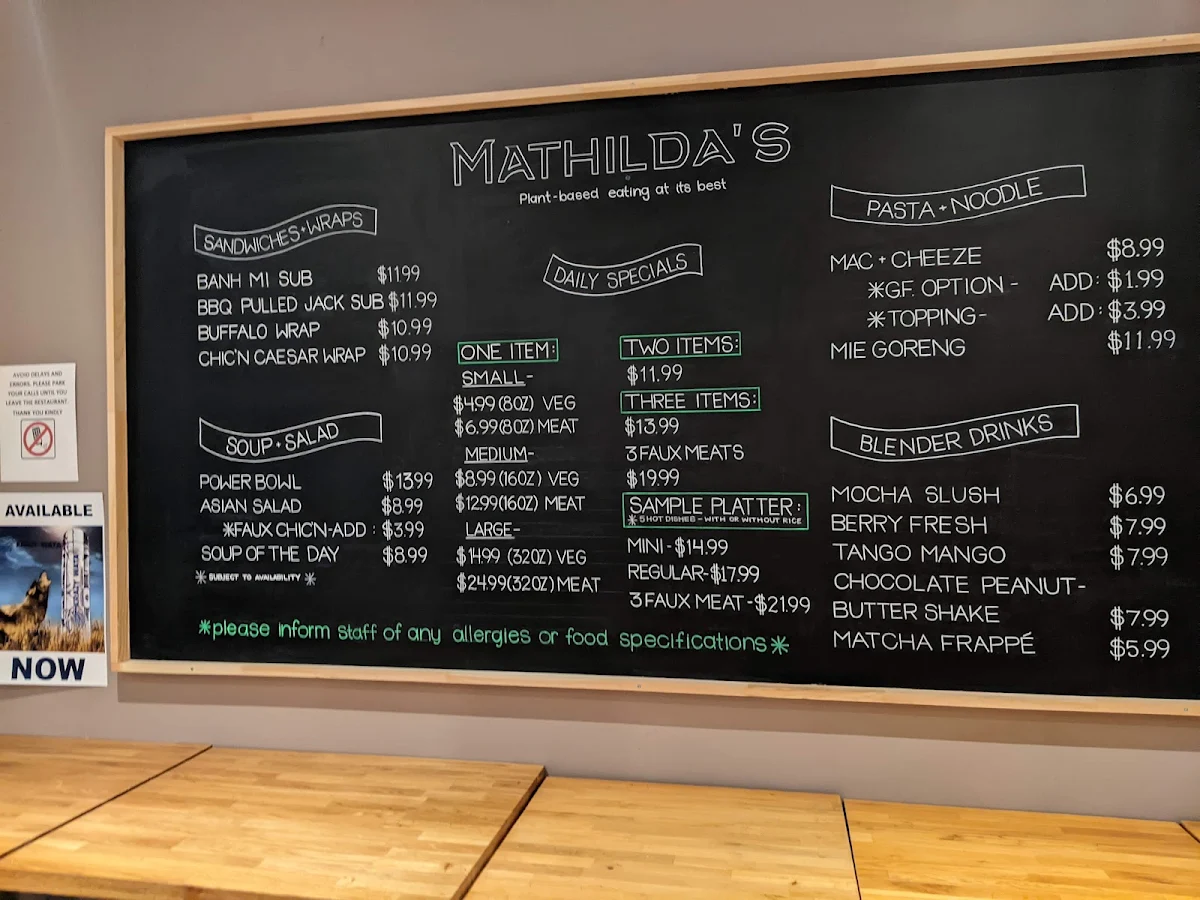 MATHILDA'S
Plant-based eating at its best
SANDWICHES + WRAPS
BANH MI SUB $11.99
BBQ PULLED JACK SUB $11.99
BUFFALO WRAP $10.99
CHIC'N CAESAR WRAP $10.99
SOUP + SALAD
POWER BOWL $13.99
ASIAN SALAD $8.99
*FAUX CHIC'N-ADD : $3.99
SOUP OF THE DAY $8.99
* SUBJECT TO AVAILABILITY *
DAILY SPECIALS
ONE ITEM:
SMALL-
$4.99 (8OZ) VEG
$6.99 (8OZ) MEAT
MEDIUM-
$8.99 (16OZ) VEG
$12.99 (16OZ) MEAT
LARGE-
$14.99 (32OZ) VEG
$24.99 (32OZ) MEAT
TWO ITEMS:
$11.99
THREE ITEMS:
$13.99
3 FAUX MEATS
$19.99
SAMPLE PLATTER:
* 5 HOT DISHES - WITH OR WITHOUT RICE
MINI - $14.99
REGULAR - $17.99
3 FAUX MEAT - $21.99
PASTA + NOODLE
MAC + CHEEZE $8.99
*G.F. OPTION - ADD: $1.99
*TOPPING - ADD: $3.99
MIE GORENG $11.99
BLENDER DRINKS
MOCHA SLUSH $6.99
BERRY FRESH $7.99
TANGO MANGO $7.99
CHOCOLATE PEANUT-
BUTTER SHAKE $7.99
MATCHA FRAPPÉ $5.99
*please inform staff of any allergies or food specifications*
AVOID DELAYS AND
ERRORS. PLEASE PARK
YOUR CALLS UNTIL YOU
LEAVE THE RESTAURANT.
THANK YOU KINDLY
AVAILABLE
NOW